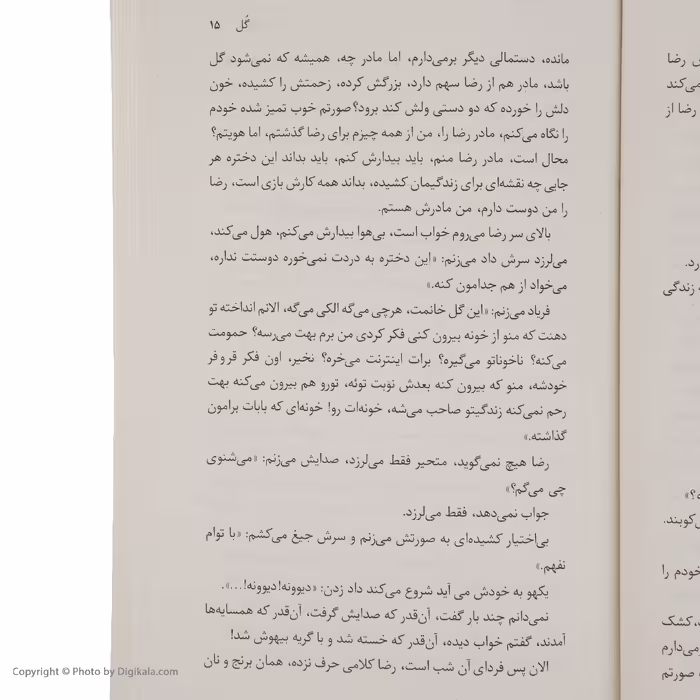 گُل ۱۵
مانده، دستمالی دیگر برمی‌دارم، اما مادر چه، همیشه که نمی‌شود گل
باشد، مادر هم از رضا سهم دارد، بزرگش کرده، زحمتش را کشیده، خون
دلش را خورده که دو دستی ولش کند برود؟ صورتم خوب تمیز شده خودم
را نگاه می‌کنم، مادر رضا را، من از همه چیزم برای رضا گذشتم، اما هویتم؟
محال است، مادر رضا منم، باید بیدارش کنم، باید بداند این دختره هر
جایی چه نقشه‌ای برای زندگیمان کشیده، بداند همه کارش بازی است، رضا
را من دوست دارم، من مادرش هستم.
بالای سر رضا می‌روم خواب است، بی‌هوا بیدارش می‌کنم، هول می‌کند،
می‌لرزد سرش داد می‌زنم: «این دختره به دردت نمی‌خوره دوستت نداره،
می‌خواد از هم جدامون کنه.»
فریاد می‌زنم: «این گل خانمت، هرچی می‌گه الکی می‌گه، الانم انداخته تو
دهنت که منو از خونه بیرون کنی فکر کردی من برم بهت می‌رسه؟ حمومت
می‌کنه؟ ناخوناتو می‌گیره؟ برات اینترنت می‌خره؟ نخیر، اون فکر قر و فر
خودشه، منو که بیرون کنه بعدش نوبت توئه، تورو هم بیرون می‌کنه بهت
رحم نمی‌کنه زندگیتو صاحب می‌شه، خونه‌ات رو! خونه‌ای که بابات برامون
گذاشته.»
رضا هیچ نمی‌گوید، متحیر فقط می‌لرزد، صدایش می‌زنم: «می‌شنوی
چی می‌گم؟»
جواب نمی‌دهد، فقط می‌لرزد.
بی‌اختیار کشیده‌ای به صورتش می‌زنم و سرش جیغ می‌کشم: «با توام
نفهم.»
یکهو به خودش می آید شروع می‌کند داد زدن: «دیوونه! دیوونه!...».
نمی‌دانم چند بار گفت، آن‌قدر که صدایش گرفت، آن‌قدر که همسایه‌ها
آمدند، گفتم خواب دیده، آن‌قدر که خسته شد و با گریه بیهوش شد!
الان پس فردای آن شب است، رضا کلامی حرف نزده، همان برنج و نان
رضا
می‌کند
رضا از
زندگی
می‌کوبند.
خودم را
کشک
می‌دارم
صورتم
Copyright © Photo by Digikala.com